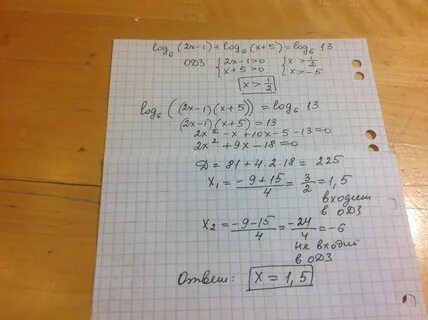 log₆(2x-1)+log₆(x+5)=log₆13
ОДЗ { 2x-1>0 { x>1/2
x+5>0 x>-5
x>1/2
log₆((2x-1)(x+5))=log₆13
(2x-1)(x+5)=13
2x²-x+10x-5-13=0
2x²+9x-18=0
D=81+4·2·18=225
x₁=(-9+15)/4=3/2=1,5
входит
в ОДЗ
x₂=(-9-15)/4=-24/4=-6
не входит
в ОДЗ
Ответ: x=1,5